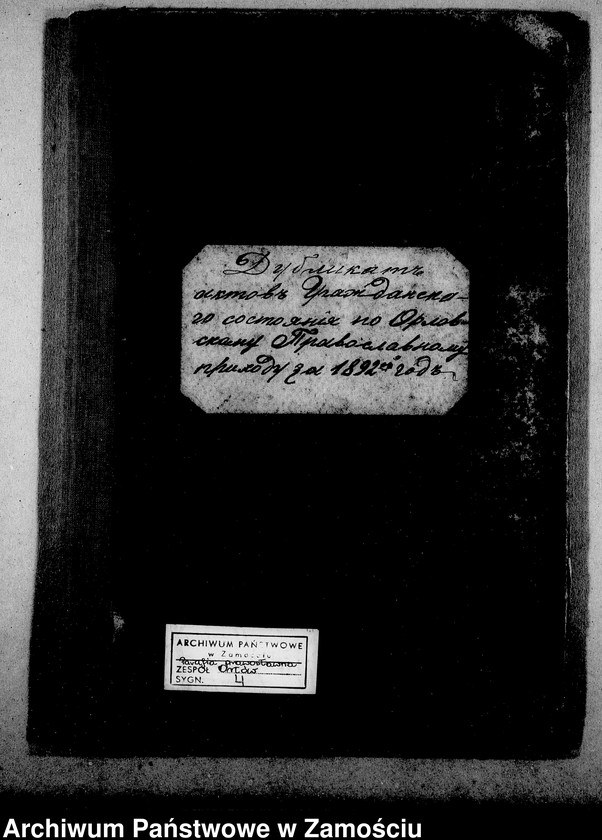 Дубликатъ
актовъ Гражданска-
го состоянія по Орлов-
скому Православному
приходу за 1892й годъ
ARCHIWUM PAŃSTWOWE
w Zamościu
Parafia prawosławna
ZESPÓŁ Orłów
SYGN. 4
Archiwum Państwowe w Zamościu